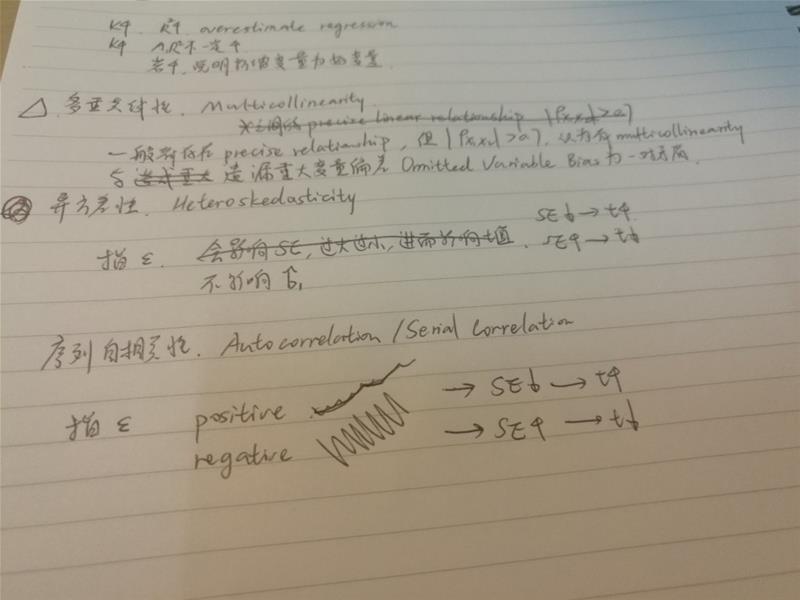 K↑ R²↑ overestimate regression
K↑ A.R²不一定↑
若↑,说明新增变量为好变量
△ 多重共线性. Multicollinearity
precise linear relationship
一般都存在 precise relationship, 但 >0.7, 认为有 multicollinearity
与 遗漏重大变量偏差 Omitted Variable Bias 为一对
异方差性. Heteroskedasticity SE↓→t↑
指 ε. 会影响SE,过大过小,进而影响t值. SE↑→t↓
不影响 b̂₁
序列自相关性. Autocorrelation / Serial Correlation
指 ε positive → SE↓ → t↑
negative → SE↑ → t↓